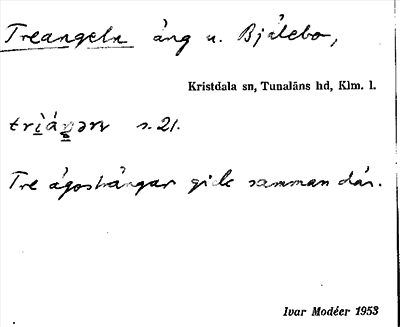 Treangeln äng u. Bjälebo,
Kristdala sn, Tunaläns hd, Klm. l.
s. 21.
Tre ägoshängar gick samman där.
Ivar Modéer 1953